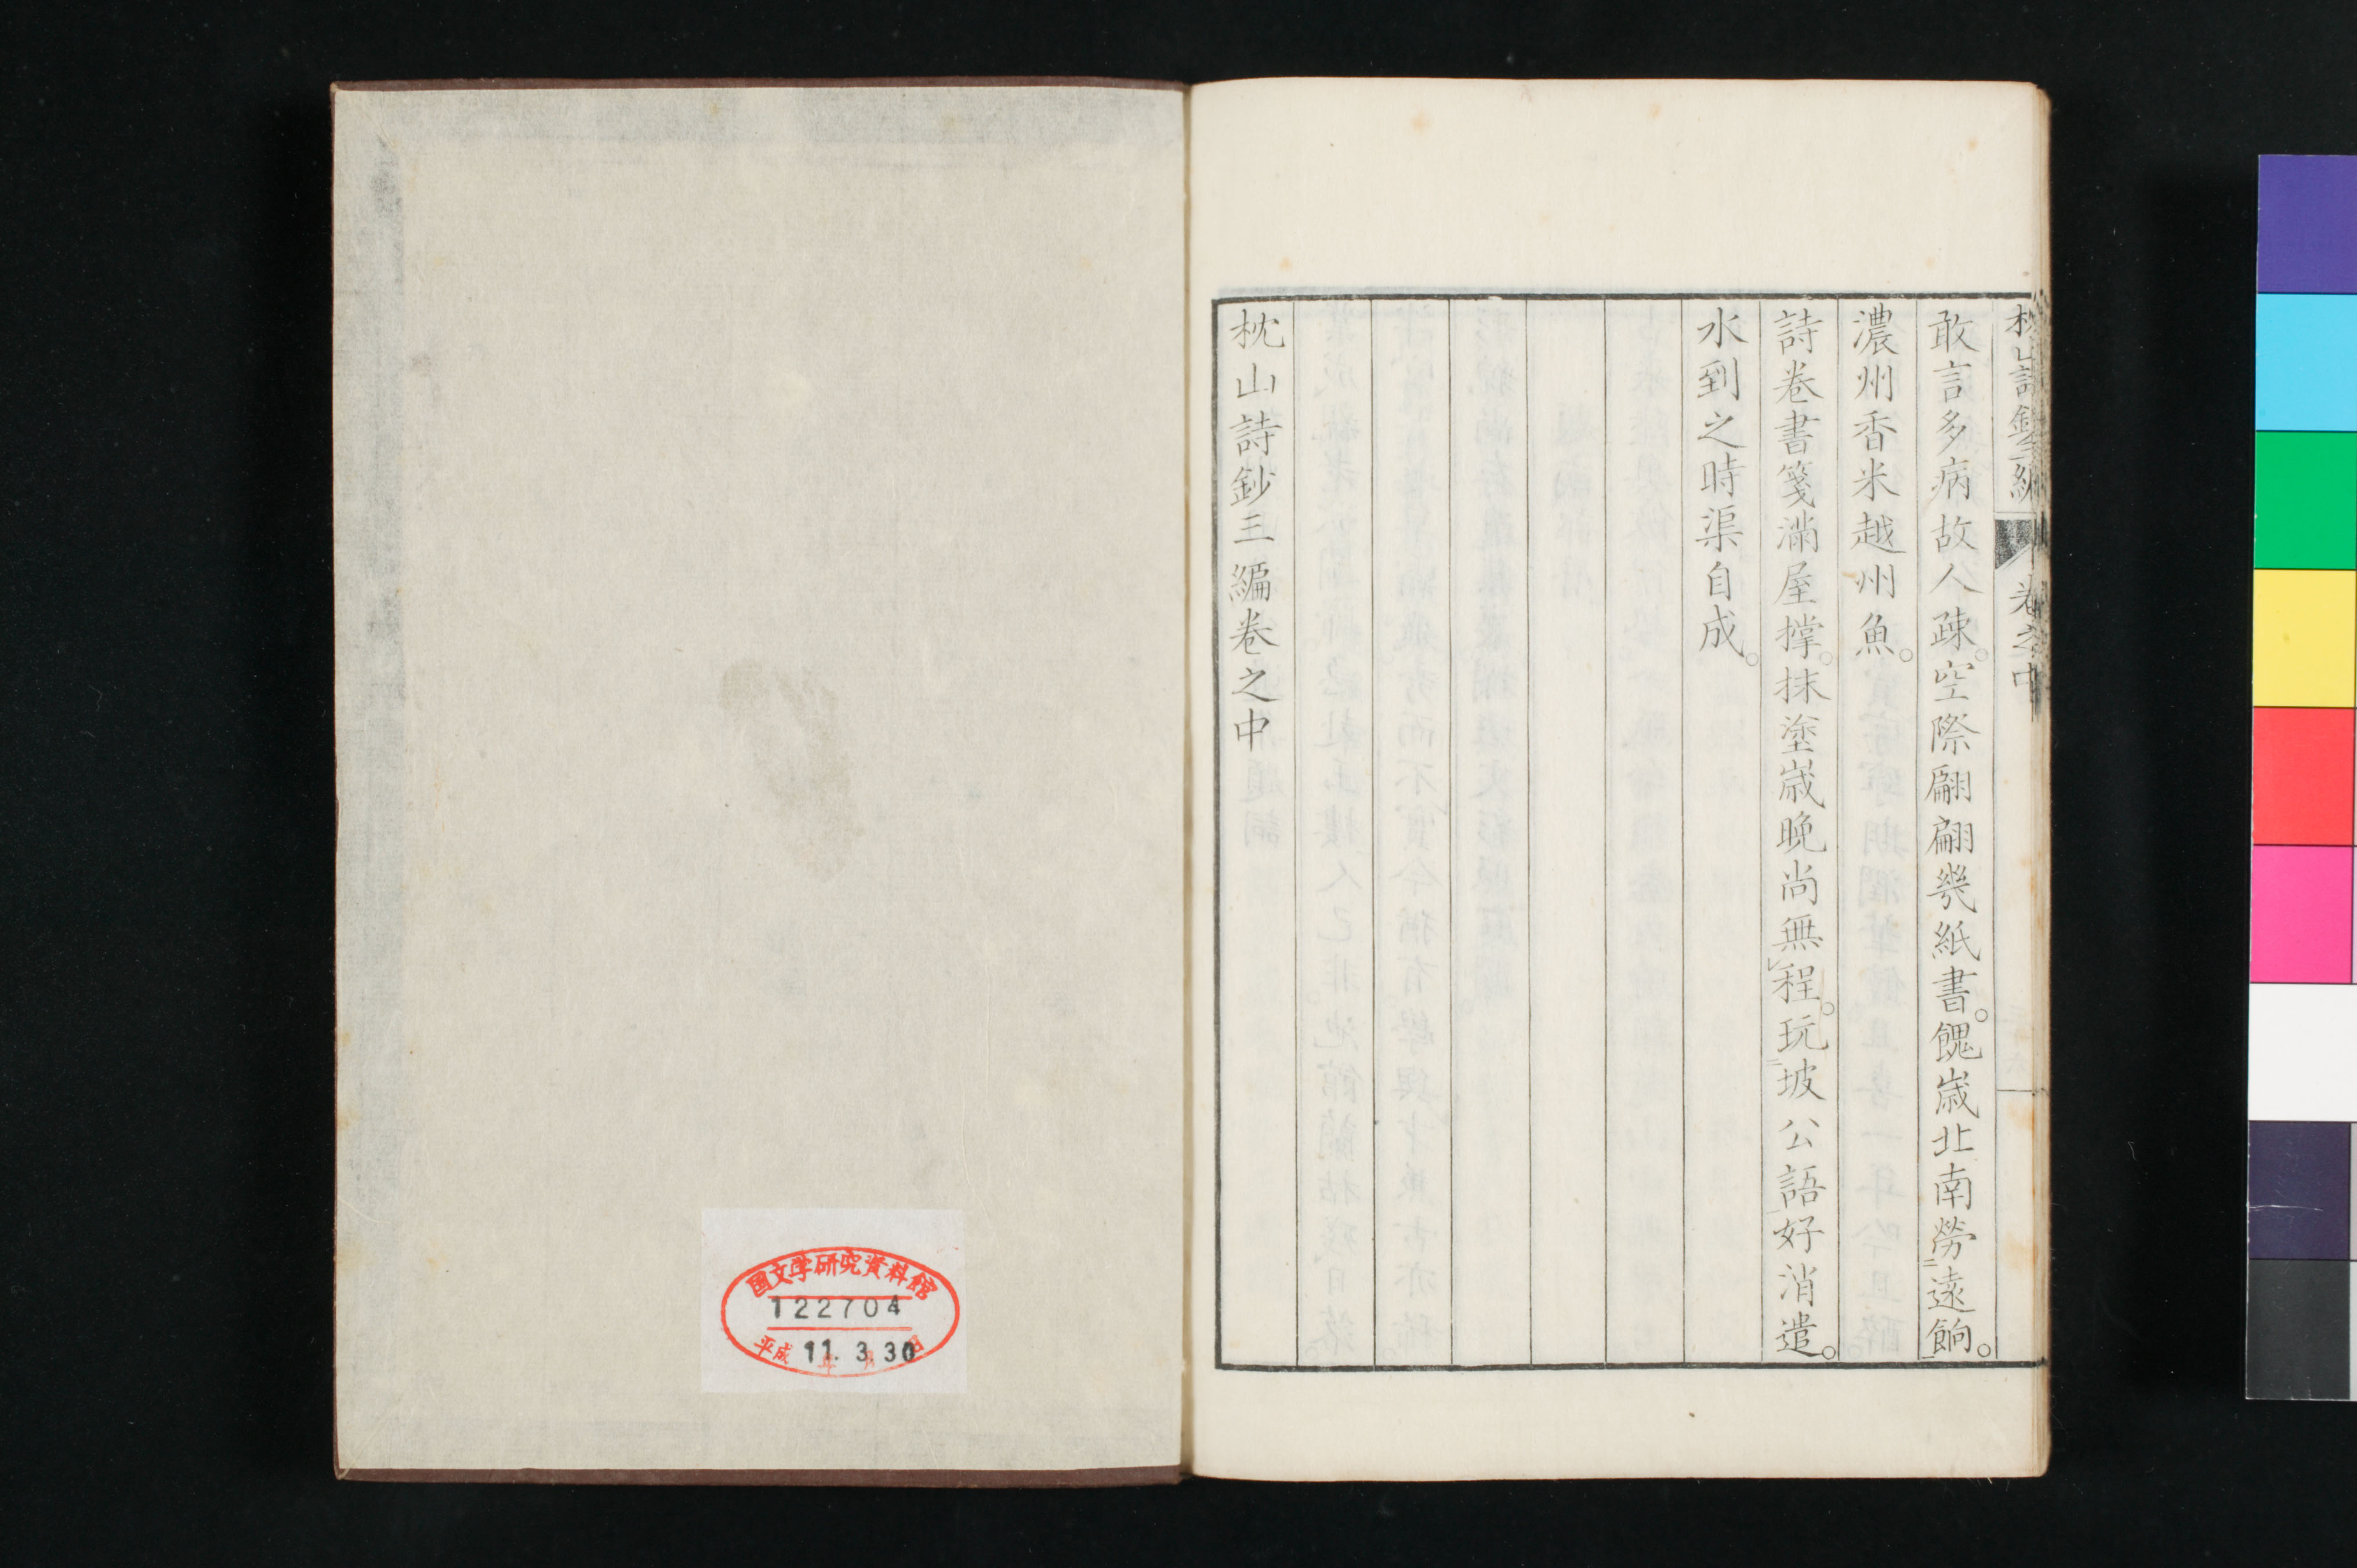 枕山詩鈔三編 卷之中
敢言多病故人疎。空際翩翩幾紙書。餽歲北南勞遠餉。
濃州香米越州魚。
詩卷書箋滿屋撐。抹塗歲晚尚無程。玩坡公語好消遣。
水到之時渠自成。
枕山詩鈔三編卷之中
国文学研究資料館
122704
平成 11. 3. 30